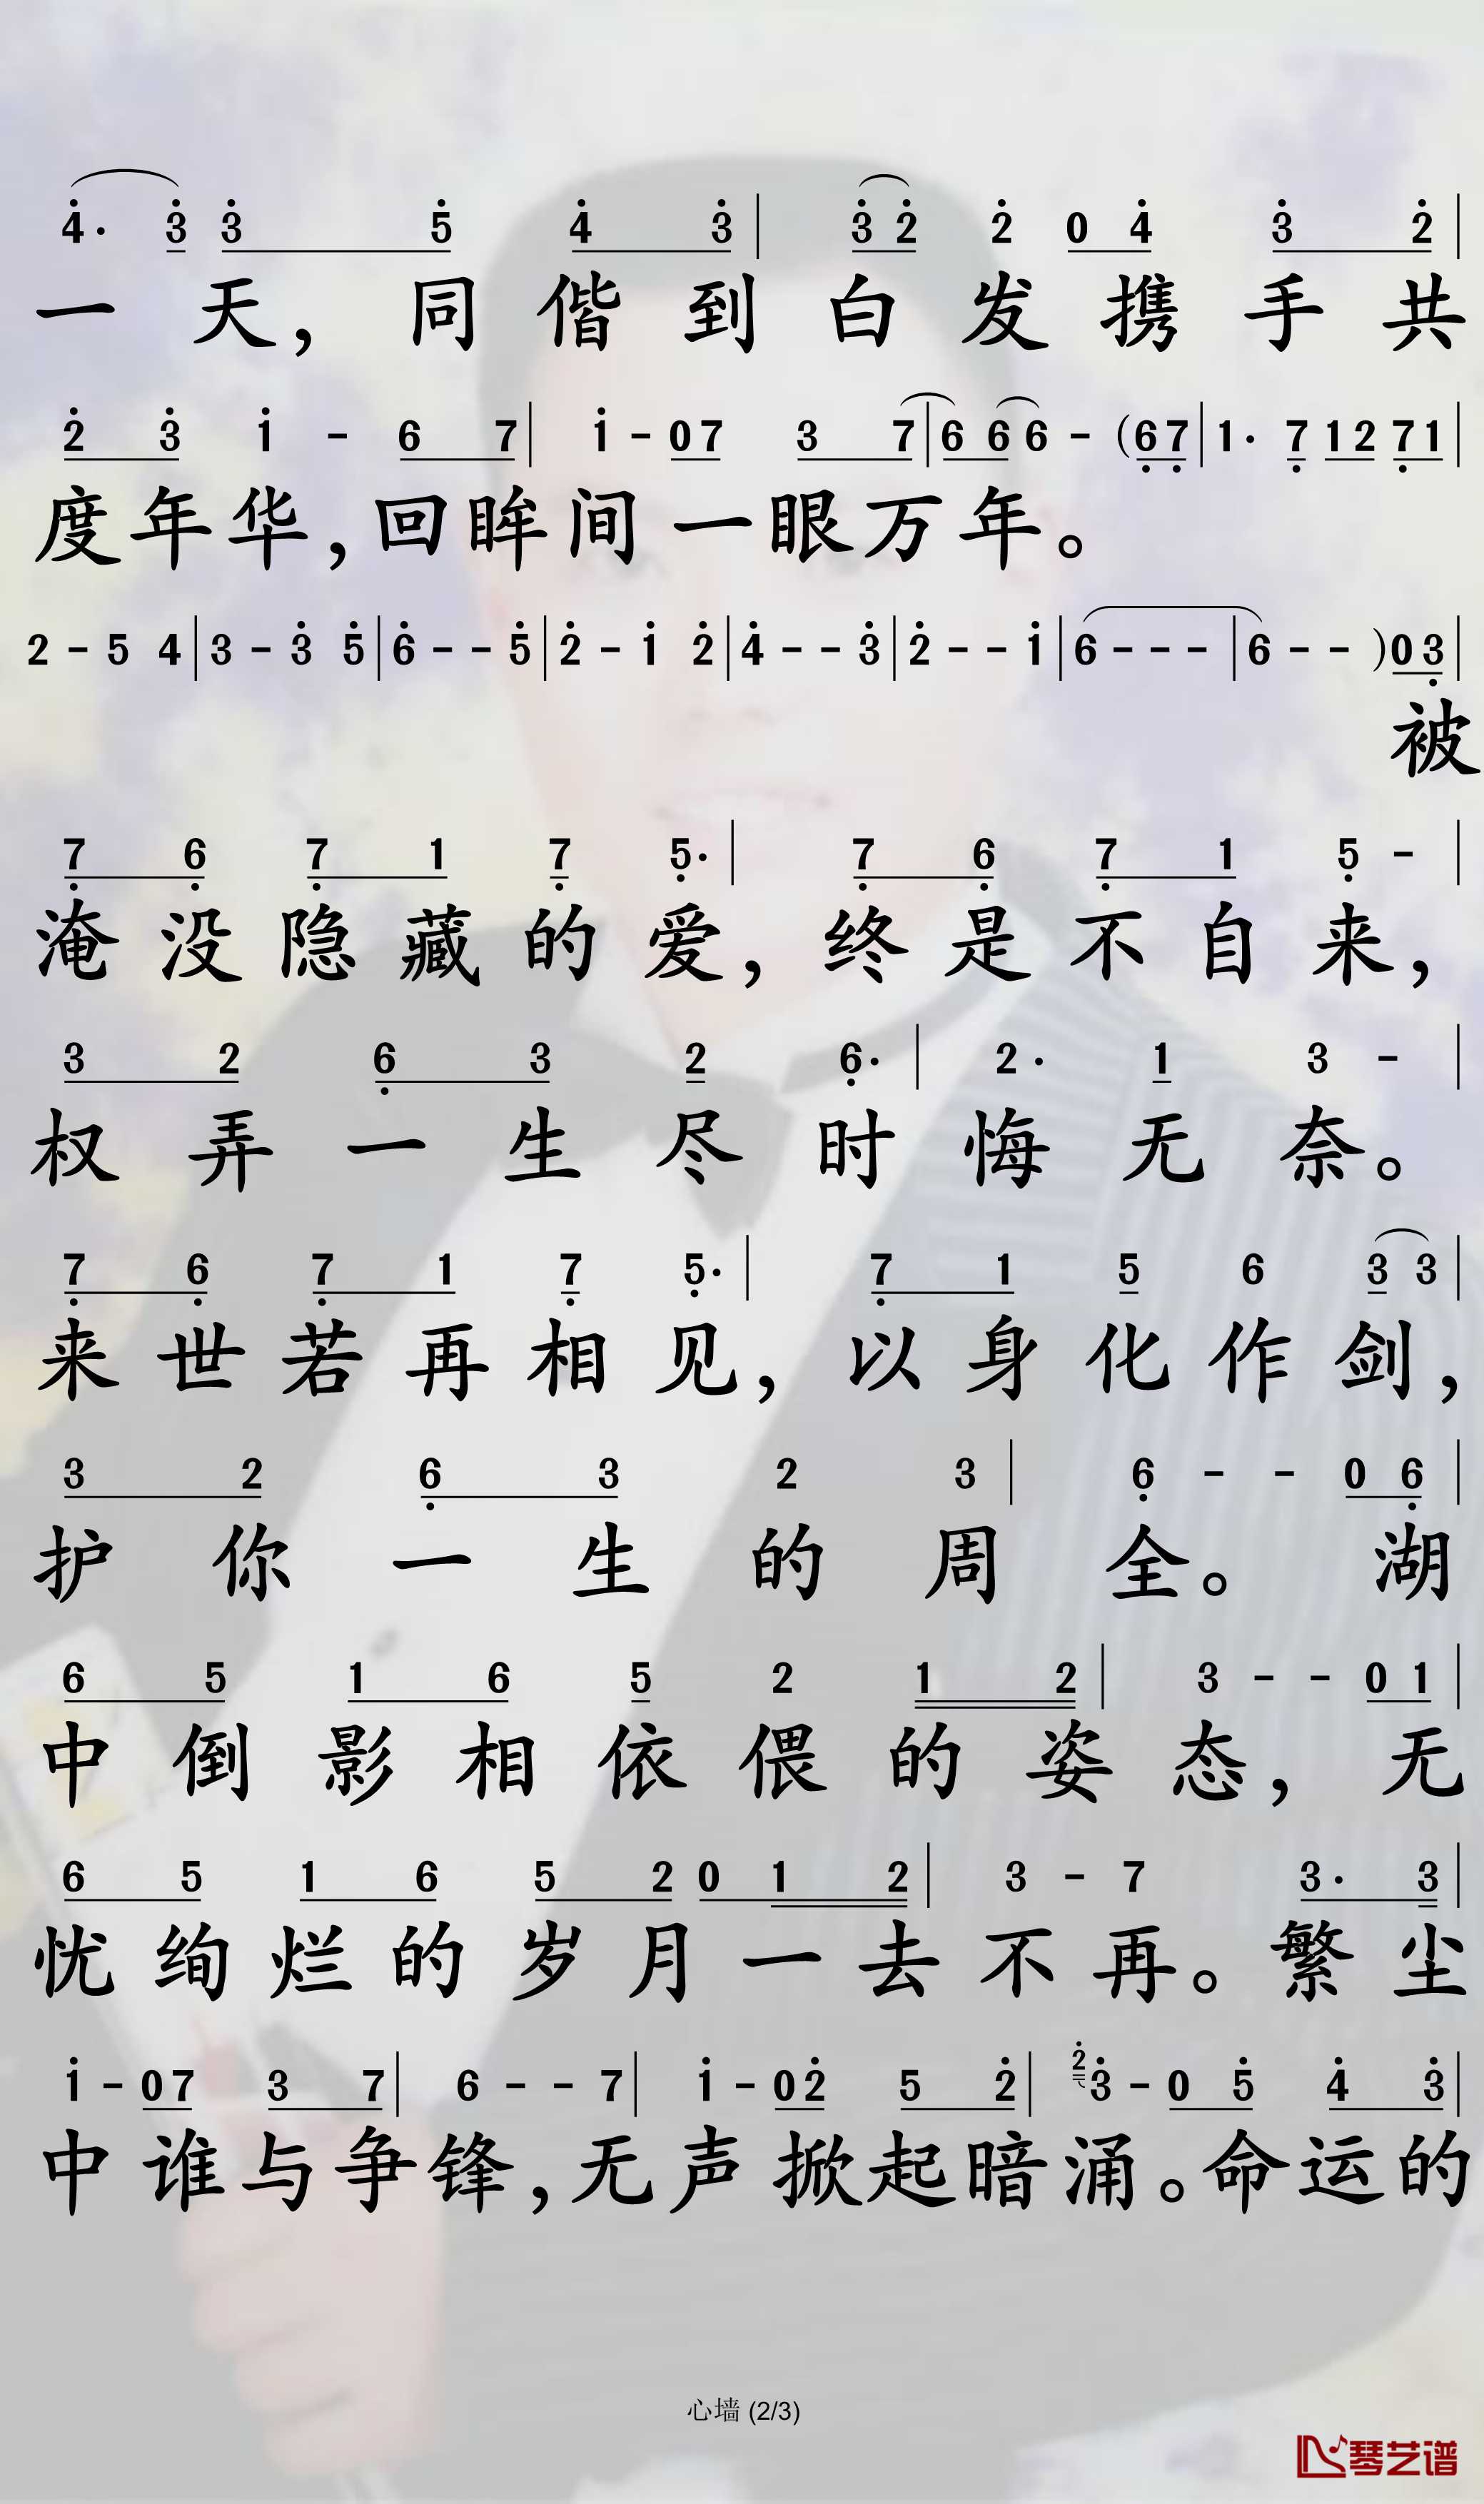 4̇· 3̇ 3̇ 5̇ 4̇ 3̇ | 3̇ 2̇ 2̇ 0 4̇ 3̇ 2̇ |
一天，同偕到白发携手共
2̇ 3̇ 1̇ - 6 7 | 1̇ - 0 7 3 7 | 6 6 6 - (6̣ 7̣ | 1· 7̣ 1 2 7̣ 1 |
度年华，回眸间一眼万年。
2 - 5 4 | 3 - 3̇ 5̇ | 6̇ - - 5̇ | 2̇ - 1̇ 2̇ | 4̇ - - 3̇ | 2̇ - - 1̇ | 6 - - - | 6 - - ) 0 3̣ |
被
7̣ 6̣ 7̣ 1 7̣ 5̣· | 7̣ 6̣ 7̣ 1 5̣ - |
淹没隐藏的爱，终是不自来，
3 2 6̣ 3 2 6̣· | 2· 1 3 - |
权弄一生尽时悔无奈。
7̣ 6̣ 7̣ 1 7̣ 5̣· | 7̣ 1 5 6 3 3 |
来世若再相见，以身化作剑，
3 2 6̣ 3 2 3 | 6̣ - - 0 6̣ |
护你一生的周全。湖
6 5 1 6 5 2 1 2 | 3 - - 0 1 |
中倒影相依偎的姿态，无
6 5 1 6 5 2 0 1 2 | 3 - 7 3· 3 |
忧绚烂的岁月一去不再。繁尘
1̇ - 0 7 3 7 | 6 - - 7 | 1̇ - 0 2̇ 5 2̇ | 2̇ 3̇ - 0 5̇ 4̇ 3̇ |
中谁与争锋，无声掀起暗涌。命运的
心墙 (2/3)
琴艺谱